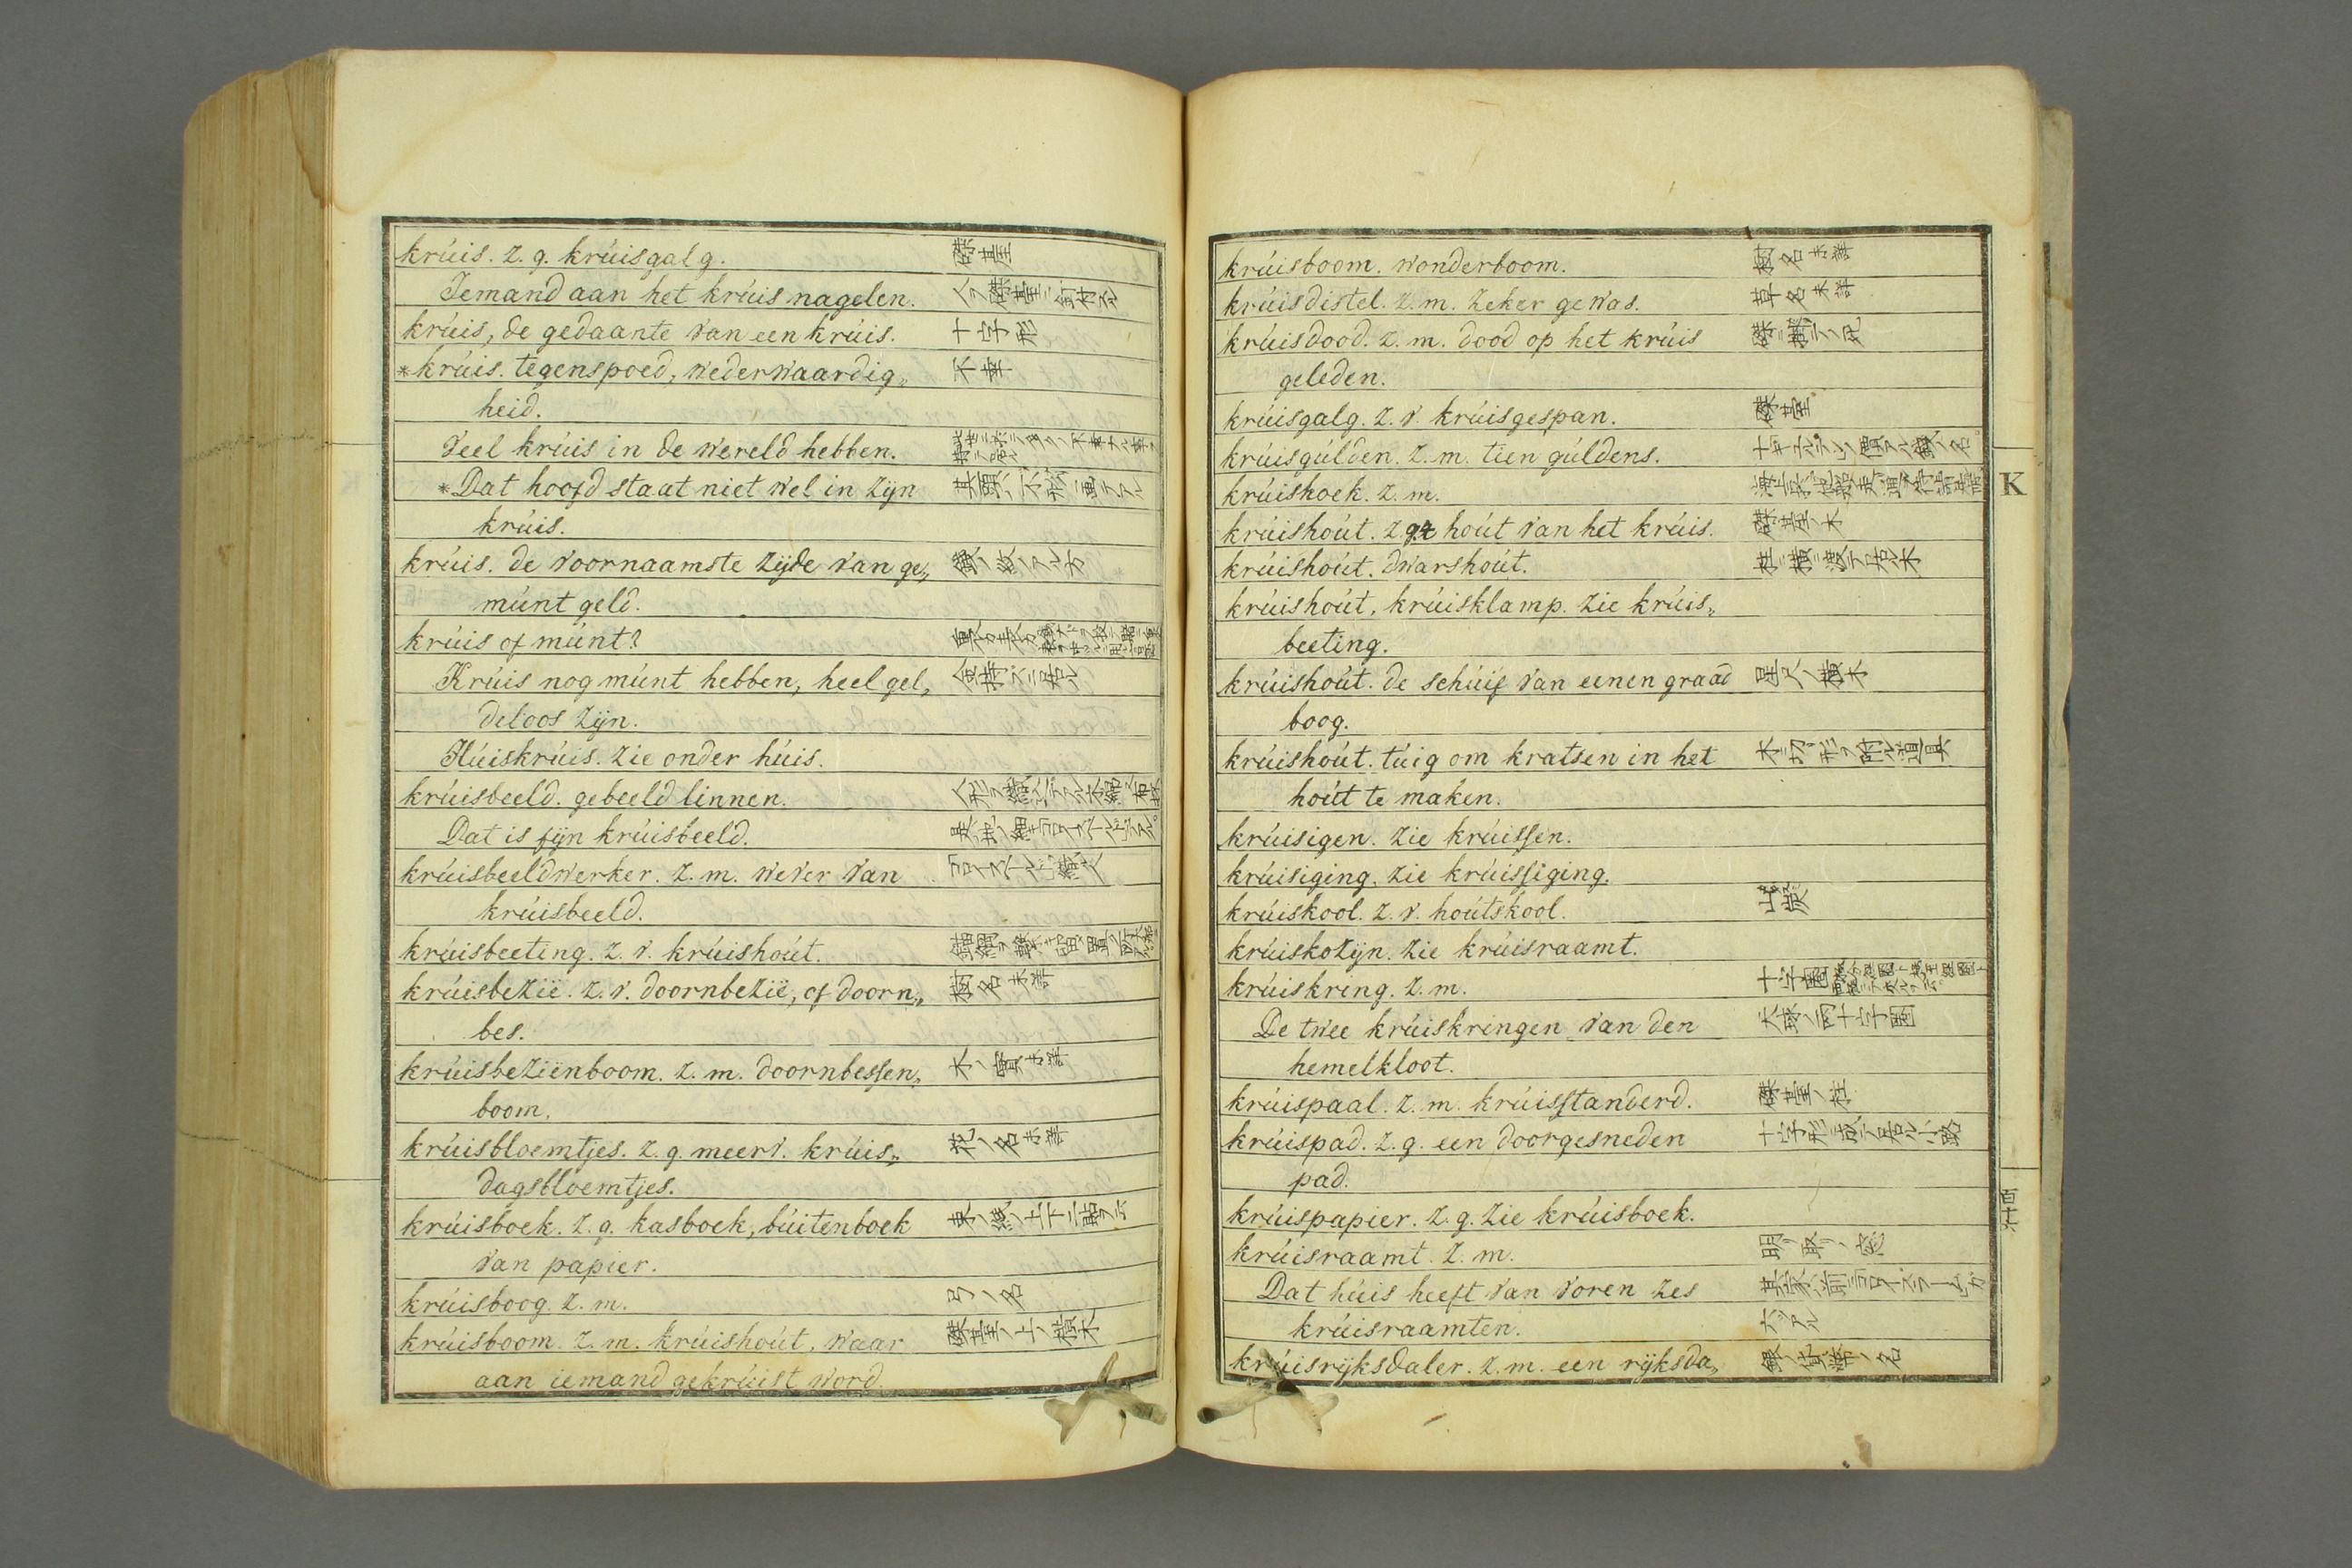 krúis. z. g. krúisgalg. 磔基
Iemand aan het krúis nagelen. 人ヲ磔基ニ釘付ル
krúis, de gedaante van een krúis. 十字形
*krúis. tegenspoed, wederwaardig„ 不幸
heid.
Veel krúis in de wereld hebben.
*Dat hoofd staat niet wel in zijn
krúis.
krúis. de voornaamste zijde van ge„ 銀ノ紋ノアル方
múnt geld.
krúis of múnt?
Krúis nog múnt hebben, heel gel„ 金持ズニ居ル
deloos zijn.
Húiskrúis. zie onder húis.
krúisbeeld. gebeeld linnen.
Dat is fijn krúisbeeld.
krúisbeeldwerker. z. m. wever van
krúisbeeld.
krúisbeeting. z. v. krúishoút.
krúisbezië. z. v. doornbezië, of doorn„ 樹名未詳
bes.
krúisbeziënboom. z. m. doornbessen„ 木ノ實未詳
boom.
krúisbloemtjes. z. g. meerv. krúis„ 花ノ名未詳
dagsbloemtjes.
krúisboek. z. g. kasboek, búitenboek
van papier.
krúisboog. z. m. 弓ノ名
krúisboom. z. m. krúishoút, waar 磔基ノ上ノ横木
aan iemand gekrúist word.
krúisboom. wonderboom. 樹名未詳
krúisdistel. z. m. zeker gewas. 草名未詳
krúisdood. z. m. dood op het krúis
geleden.
krúisgalg. z. v. krúisgespan. 磔基
krúisgúlden. z. m. tien gúldens.
krúishoek. z. m.
krúishoút. z. g. hoút van het krúis. 磔基ノ木
krúishoút. dwarshoút.
krúishoút, krúisklamp. zie krúis„
beeting.
krúishoút. de schúif van eenen graad 星尺ノ横木
boog.
krúishoút. túig om kratsen in het
hoút te maken.
krúisigen. zie krúissen.
krúisiging. zie krúissiging.
krúiskool. z. v. hoútskool.
krúiskozijn. zie krúisraamt.
krúiskring. z. m. 十字圏
De twee krúiskringen van den 天球ノ両十字圏
hemelkloot.
krúispaal. z. m. krúisstanderd. 磔基ノ柱
krúispad. z. g. een doorgesneden 十字形ニ成テ居ル小路
pad.
krúispapier. z. g. zie krúisboek.
krúisraamt. z. m. 明リ取ノ窓
Dat húis heeft van voren zes 其家ハ前ニコロイスラームガ
krúisraamten. 六ツアル
krúisrijksdaler. z. m. een rijksda„
K